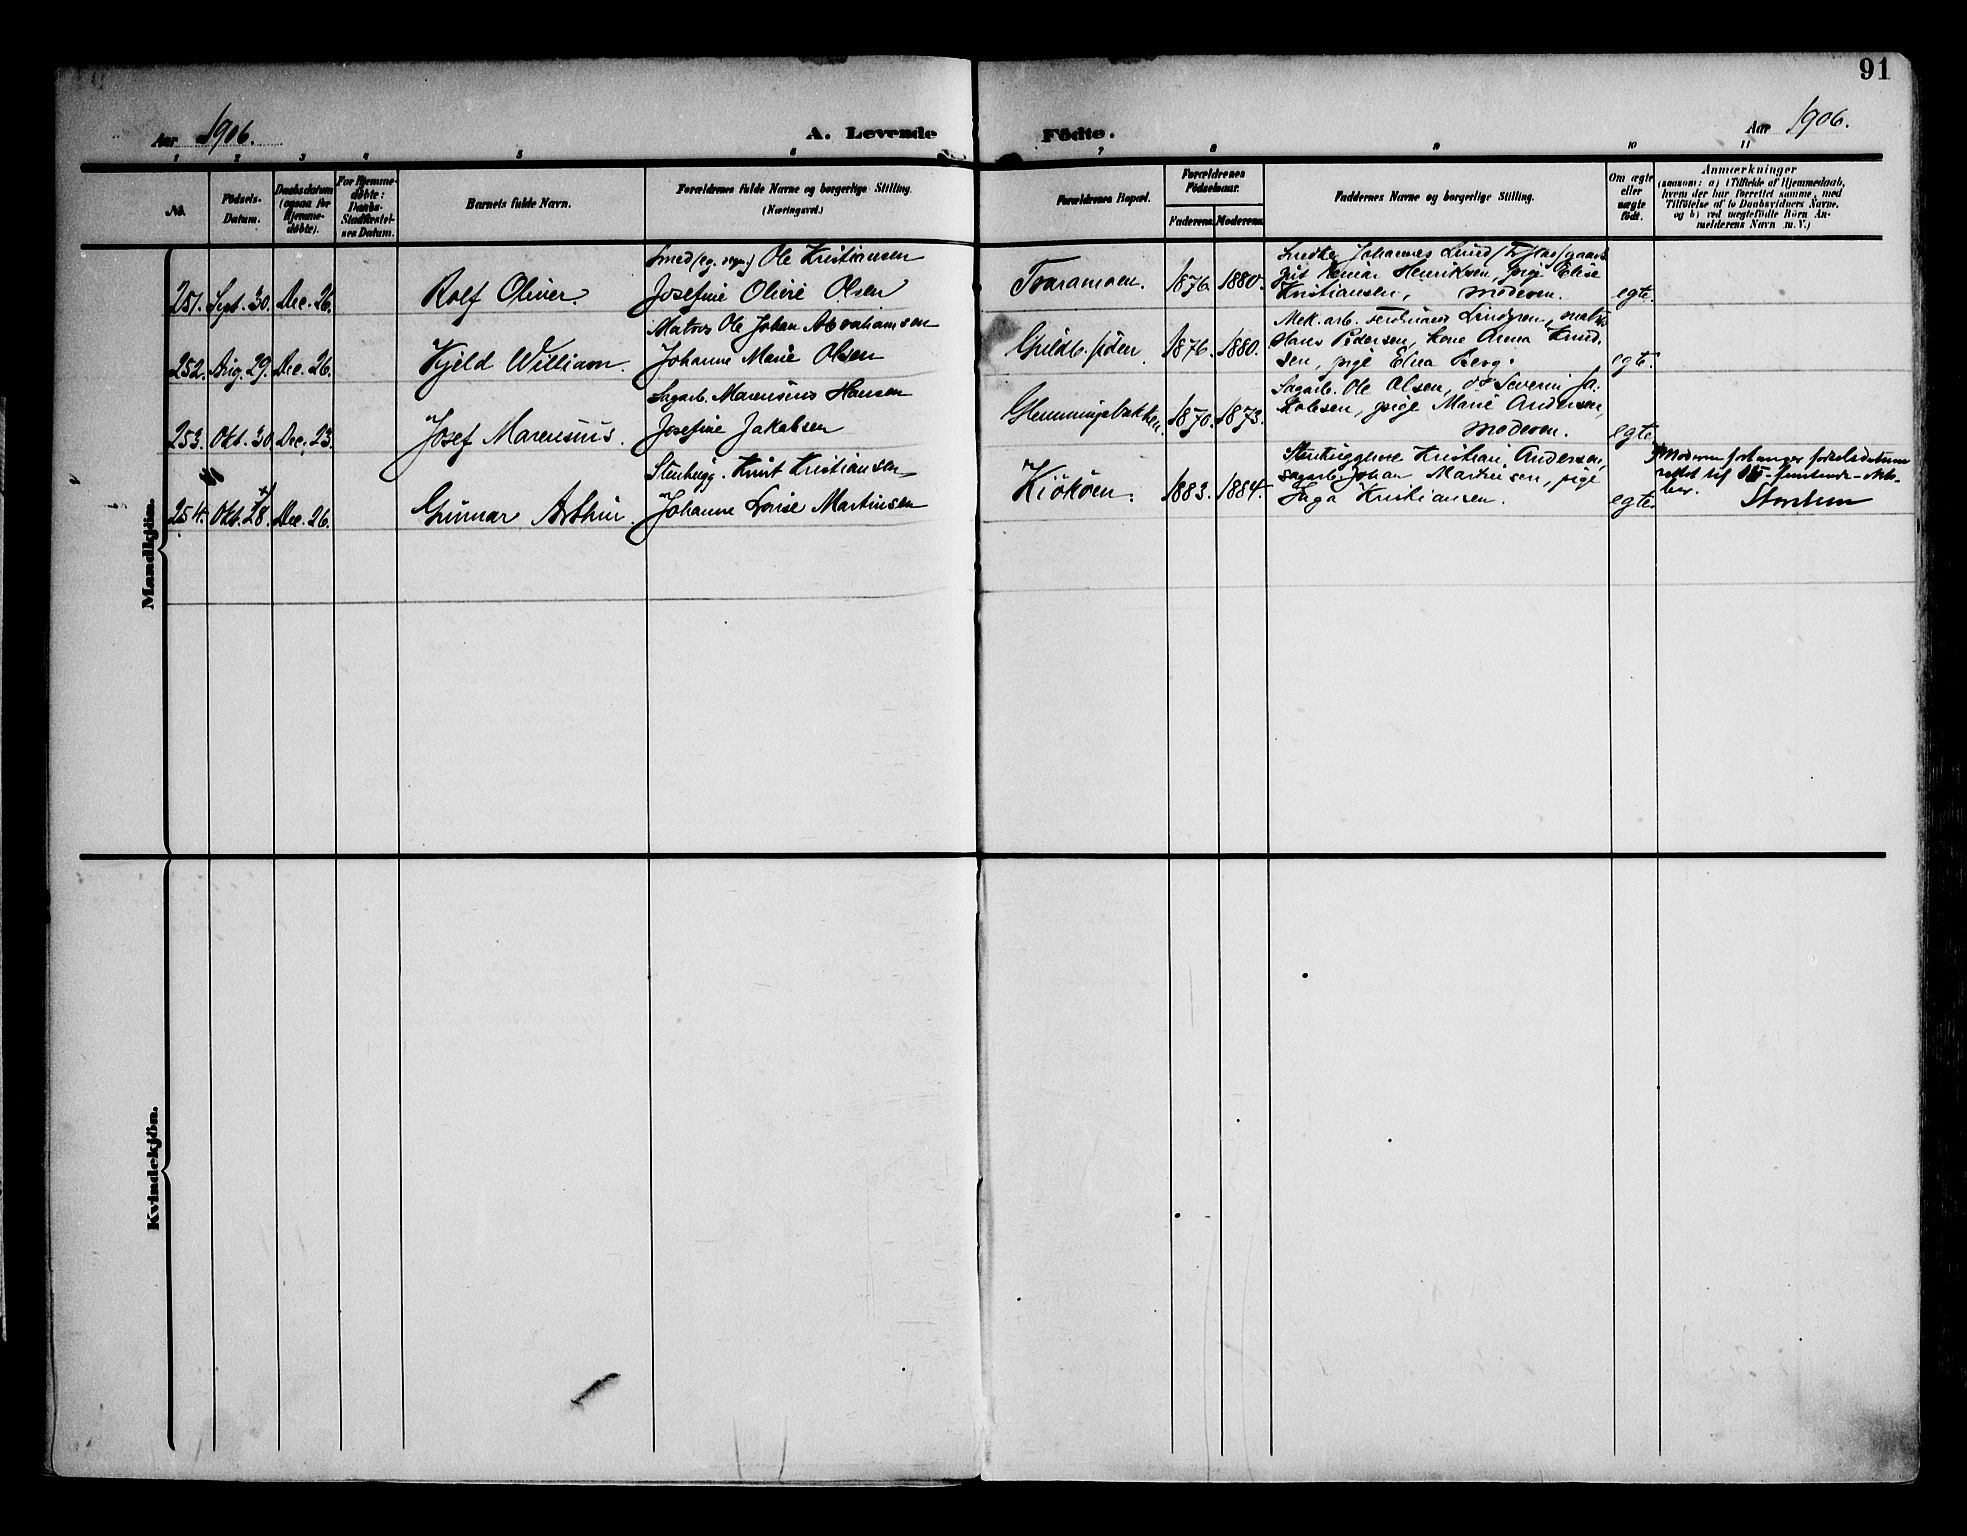 91
Aar 1906.
A. Levende Födte.
Aar 1906.
1 2 3 4 5 6 7 8 9 10 11
No.
Födsels-
Datum.
Daabsdatum
(ogsaa for
Hjemme-
döbte).
For Hjemme-
döbte:
Daabs-
Stadfæstel-
ses Datum.
Barnets fulde Navn.
Forældrenes fulde Navne og borgerlige Stilling.
(Næringsvei.)
Forældrenes Bopæl.
Forældrenes
Födselsaar.
Faderens. Moderens.
Faddernes Navne og borgerlige Stilling.
Om ægte
eller
uægte
födt.
Anmærkninger
(saasom: a) i Tilfælde af Hjemmedaab,
hvem der har forrettet samme, med
Tilföielse af to Daabsvidners Navne,
og b) ved uægtefödte Börn An-
melderens Navn m. V.)
Mandkjön.
251. Sept. 30. Dec. 26. Rolf Oliver.
Smed (eg. Ole Kristiansen
Josefine Olive Olsen
Traramoen. 1876. 1880.
Snedker Johannes Lund
Henriksen, pige Elise
Kristiansen, moderen.
egte.
252. Aug. 29. Dec. 26. Kjeld William.
Matros Ole Johan Abrahamsen
Johanne Marie Olsen
1876. 1880.
Mek. arb. Ferdinand Lindgren,
Hans Pedersen, kone Anna Knud-
sen, pige Elna Berg.
egte.
253. Okt. 30. Dec. 23. Josef Marensius.
Sagarb. Marensius Hansen
Josefine Jakobsen
Glemmingebakken. 1870. 1873.
Sagarb. Ole Olsen, do Severin Ja-
kobsen, pige Marie Andersen,
moderen.
egte.
254. Okt. 28. x) Dec. 26. Gunnar Arthur.
Stenhugg. Knut Kristiansen
Johanne Lovise Martinsen
Kiököen. 1883. 1884.
Stenhuggerne Kristian Andersen,
sagarb. Johan Martinsen, pige
Inga Kristiansen.
egte.
x) Moderen forlanger födselsdatum
rettet til femtende Okto-
ber.
Kvindekjön.